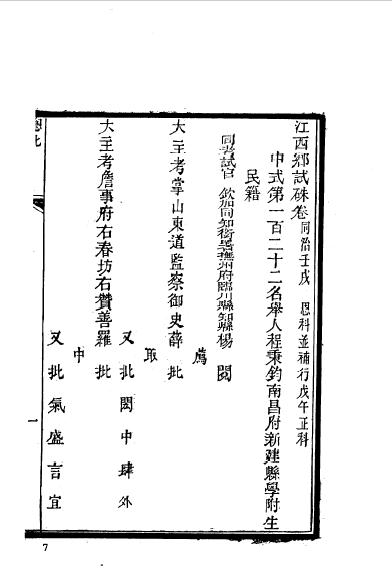 江西鄉試硃卷同治壬戌 恩科並補行戊午正科
中式第一百二十二名舉人程秉鈞南昌府新建縣學附生
民籍
同考試官 欽加同知銜署撫州府臨川縣知縣楊 閱
薦
大主考掌山東道監察御史薛 批
取
又批閎中肆外
大主考詹事府右春坊右贊善羅 批
中
又批氣盛言宜
一
7